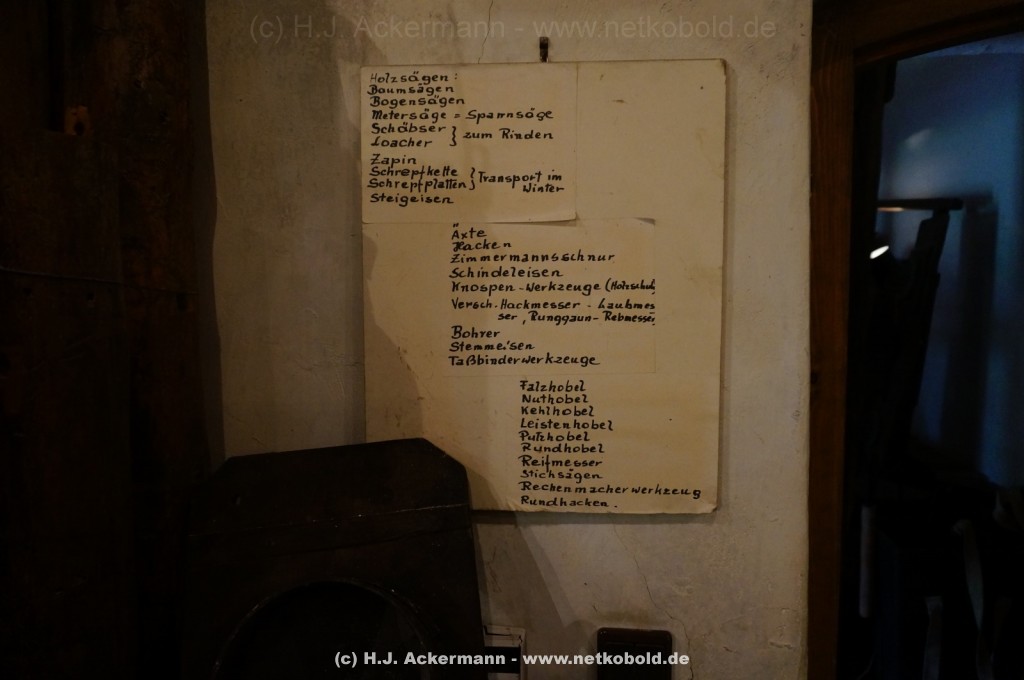 (c) H.J. Ackermann - www.netkobold.de
Holzsägen:
Baumsägen
Bogensägen
Metersäge = Spannsäge
Schäbser
Loacher } zum Rinden
Zapin
Schrepfkette
Schrepfplatten } Transport im Winter
Steigeisen
Äxte
Hacken
Zimmermannsschnur
Schindeleisen
Knospen-Werkzeuge (Holzschuh)
Versch. Hackmesser - Laubmes
ser, Runggaun-Rebmesser,
Bohrer
Stemmeisen
Taßbinderwerkzeuge
Falzhobel
Nuthobel
Kehlhobel
Leistenhobel
Putzhobel
Rundhobel
Reifmesser
Stichsägen
Rechenmacherwerkzeug
Rundhacken.
(c) H.J. Ackermann - www.netkobold.de